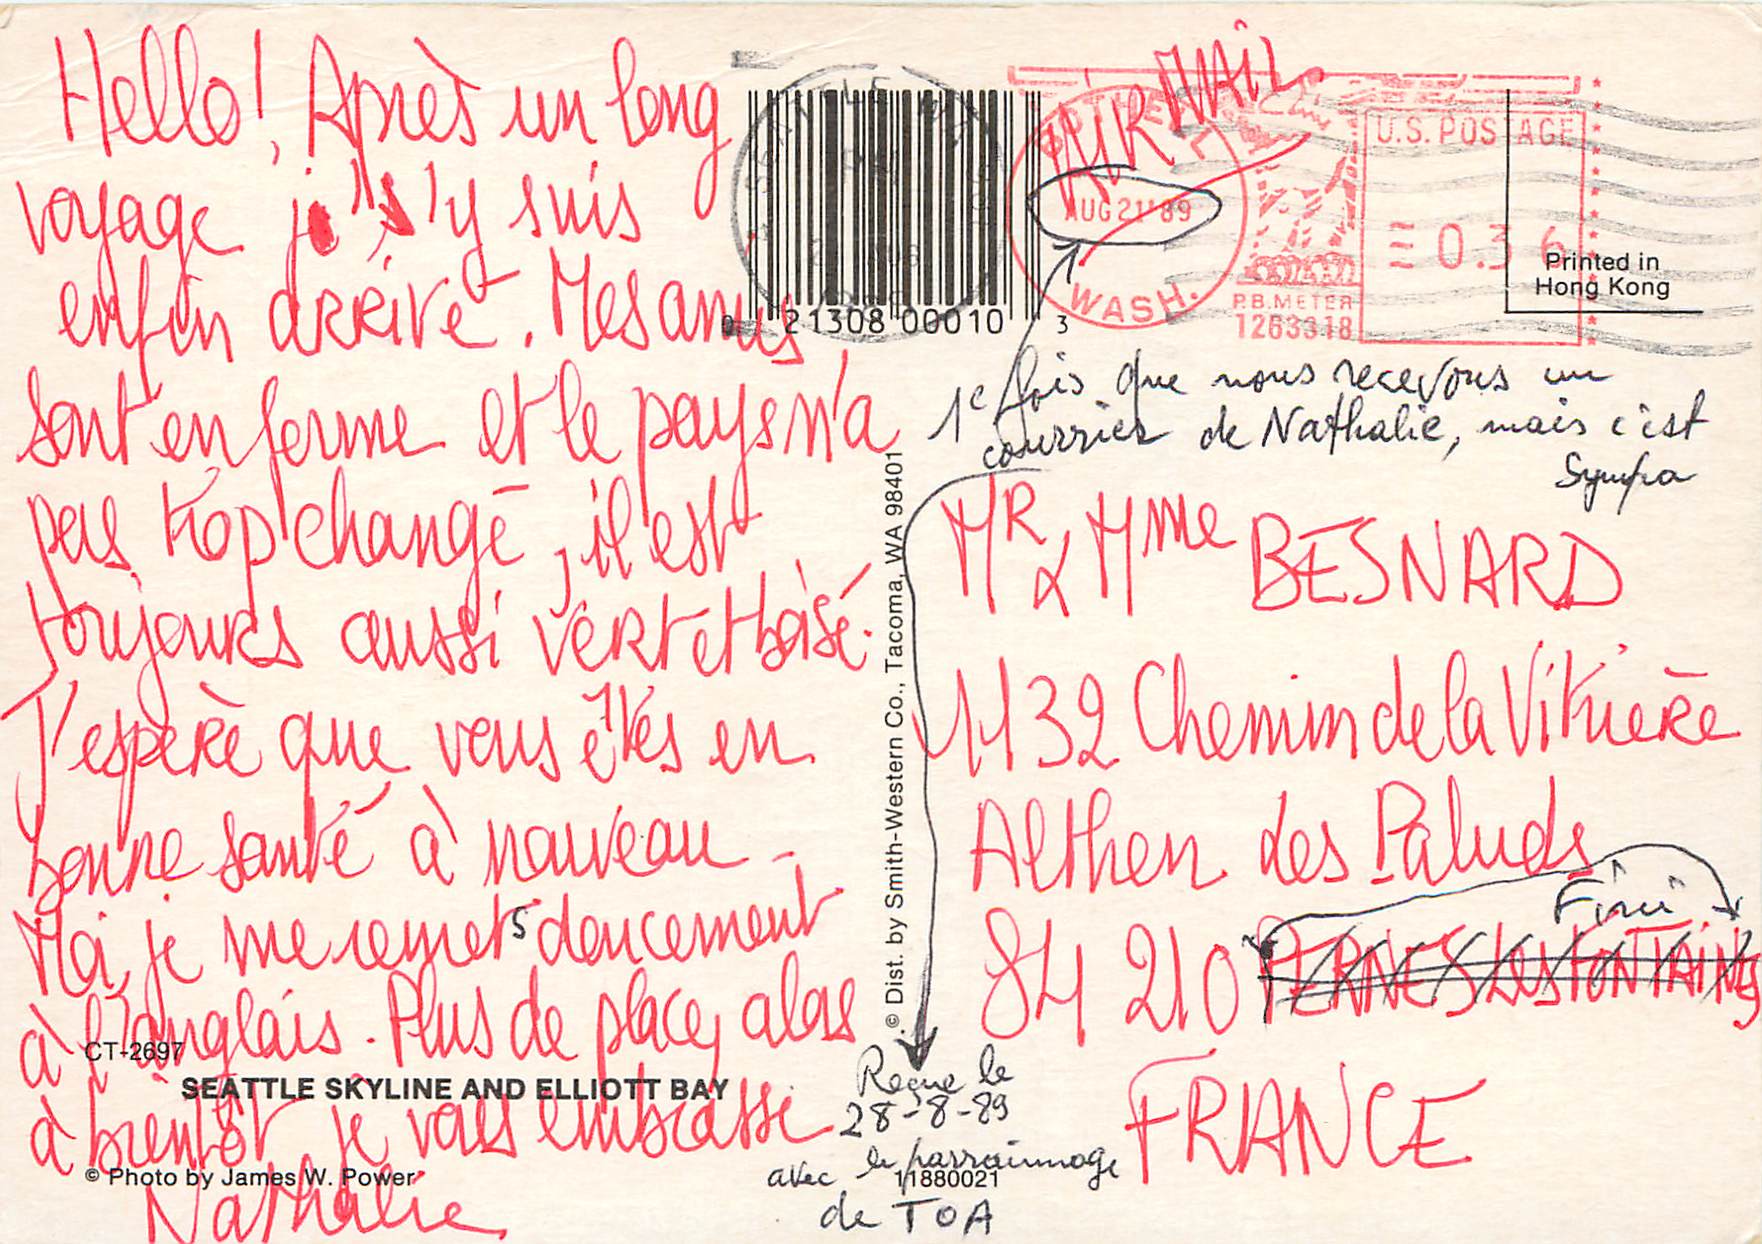 Hello! Après un long
voyage je s'y suis
enfin arrivé. Mes amis
sont en forme et le pays n'a
pas trop changé, il est
toujours aussi vert et boisé.
J'espère que vous êtes en
bonne santé à nouveau -
Moi je me remets doucement
à l'anglais. Plus de place, alors
à bientôt je vous embrasse
Nathalie
CT-2697
SEATTLE SKYLINE AND ELLIOTT BAY
© Photo by James W. Power
0 21308 00010 3
© Dist. by Smith-Western Co., Tacoma, WA 98401
AIR MAIL
AUG 21 '89
WASH.
P.B. METER
1263318
U.S. POSTAGE
0.36
Printed in
Hong Kong
1e fois que nous recevons un
courrier de Nathalie, mais c'est
Sympa
MR & Mme BESNARD
1132 Chemin de la Vitrière
Althen des Paluds
84 210 PERNES Les FONTAINES
FRANCE
Reçue le
28-8-89
avec le parrainnage
de TOA
11880021